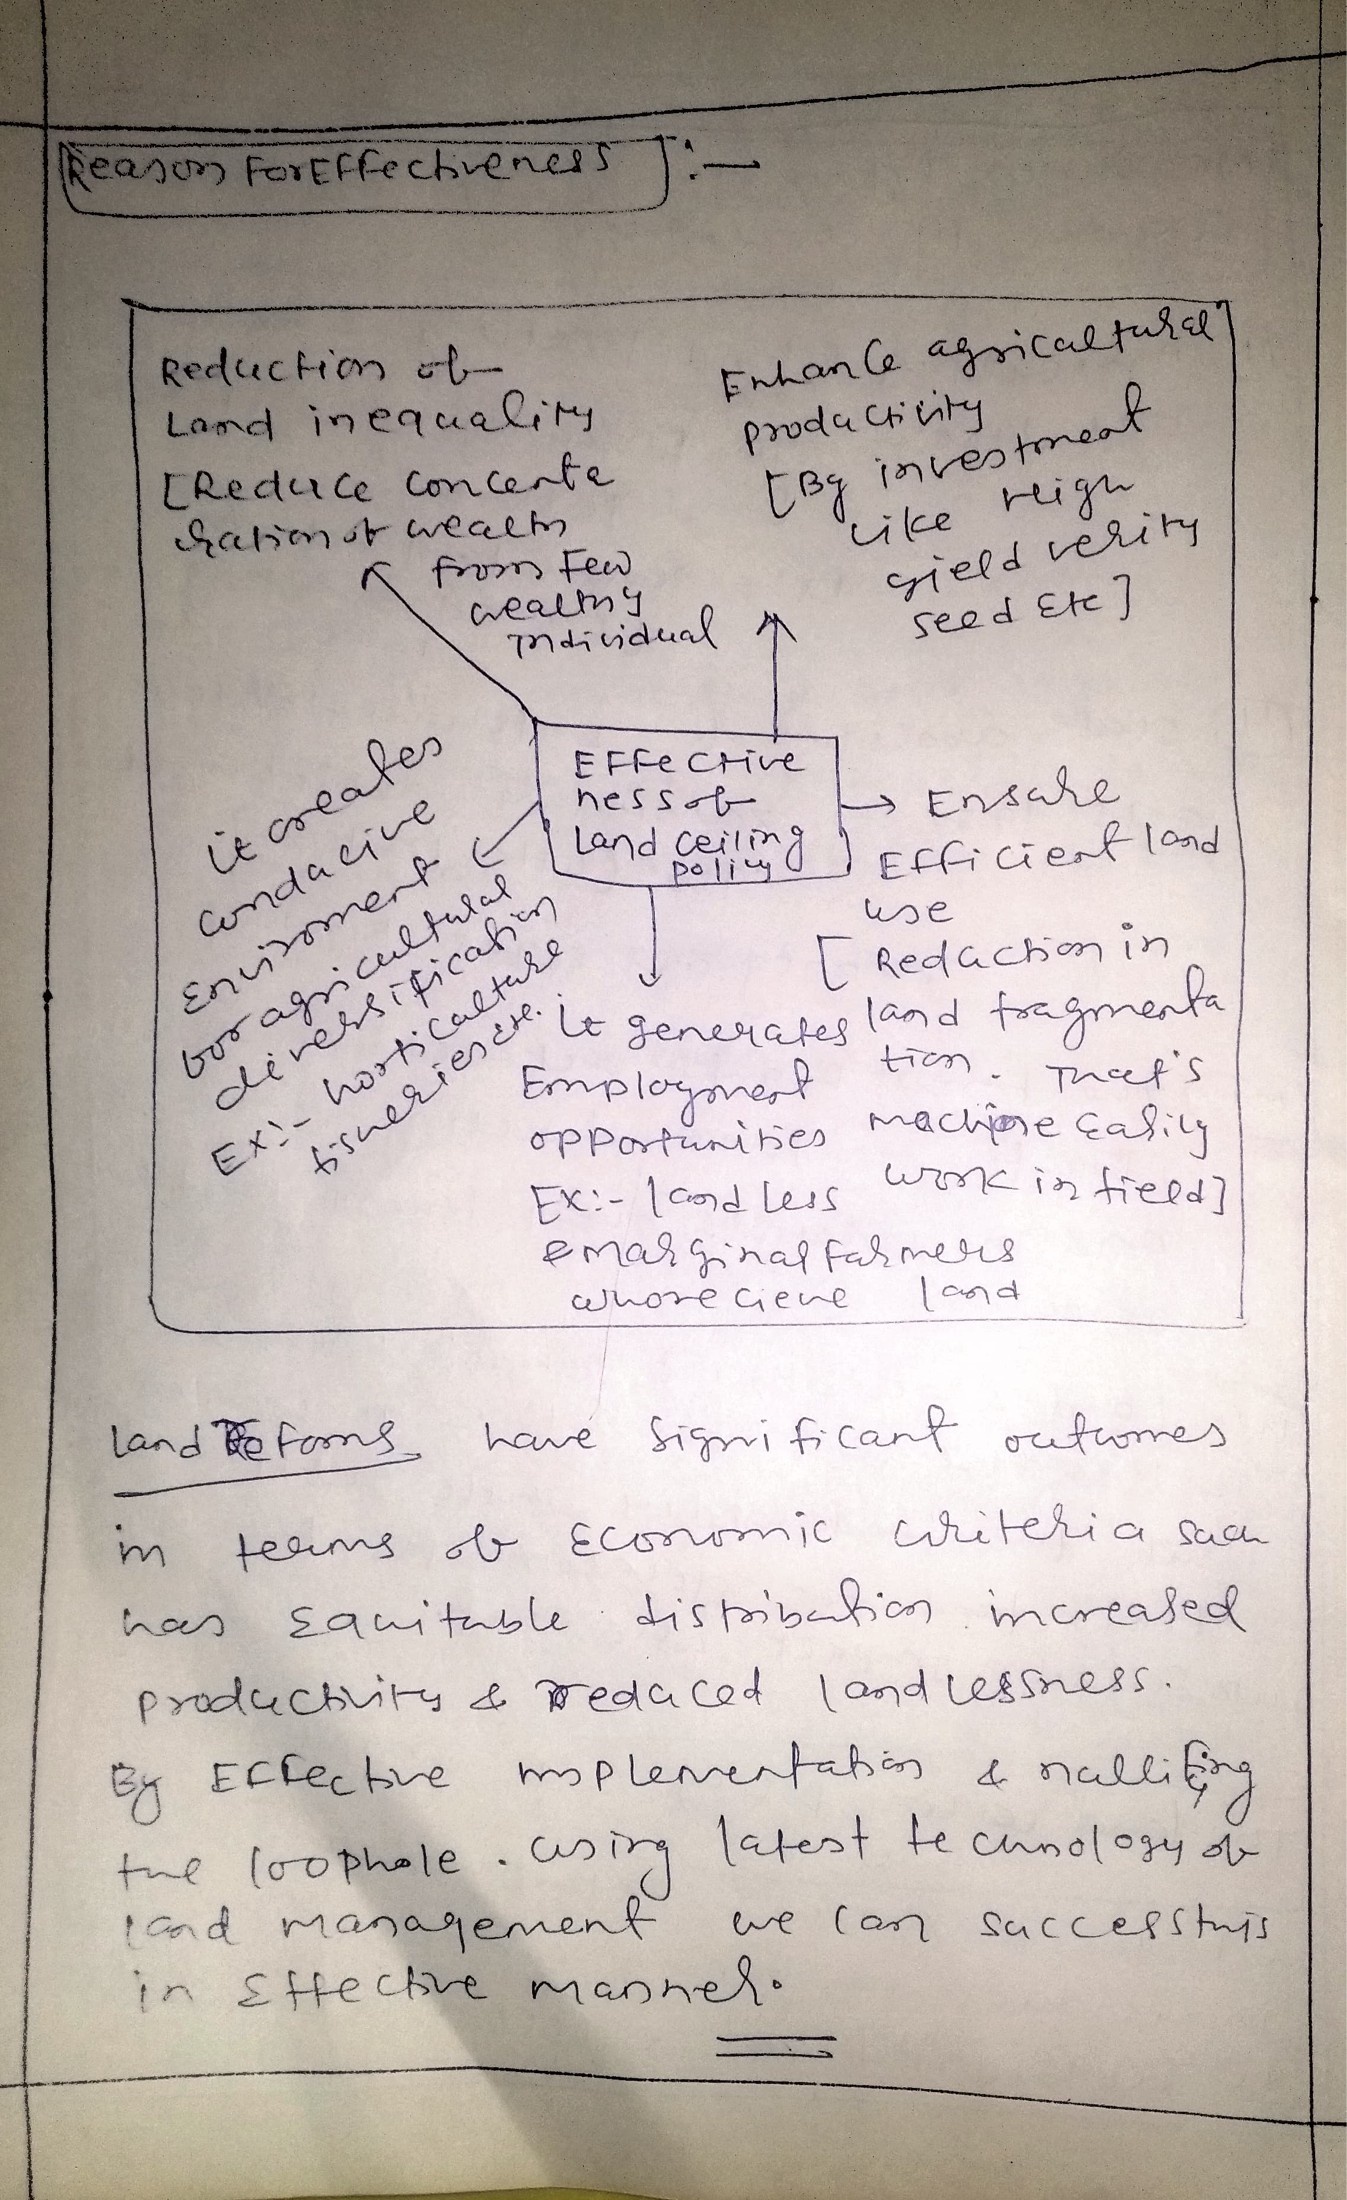 Reason For Effectiveness :-
Reduction of
Land inequality
[Reduce concentra
ration of wealth
from Few
wealthy
individual
Enhance agricultural
productivity
[By investment
like High
yield verity
seed Etc]
Effective
ness of
Land ceiling
policy
→ Ensure
Efficient land
use
[Reduction in
land fragmenta
tion. That's
machine Easily
work in field]
It generates
Employment
opportunities
Ex:- landless
& marginal farmers
who receive land
it creates
conducive
Enviroment
for agricultural
diversification
Ex:- horticulture
fisheries etc.
land Reforms have significant outcomes
in terms of Economic criteria such
has Equitable distribution increased
productivity & reduced landlessness.
By Effective implementation & nullifing
the loophole. using latest technology of
land management we can
in Effective manner.